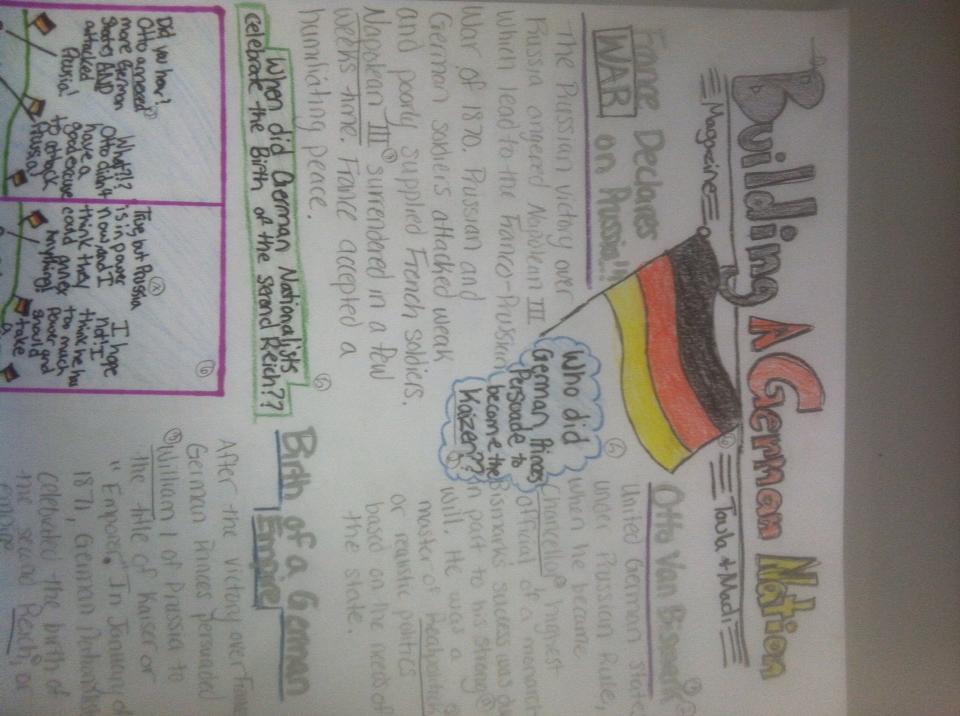 Building A German Nation
Magazine
Tayla + Madi
France Declares
WAR on Prussia!!!
The Prussian victory over
Russia angered Napolean III
Which lead to the Franco-Prussian
War of 1870. Prussian and
German soldiers attacked weak
and poorly supplied French soldiers.
Napolean III surrendered in a few
weeks time. France accepted a
humiliting peace.
Who did
German Princes
Persuade to
become the
Kaizen??
Otto Van Bismark
United German state
under Prussian Rule,
when he became
Chancellor highest
official of a monarch
Bismark's success was du
in part to his strong
will. He was a
master of Realpolitik
or realistic politics
based on the needs of
the state.
When did German Nationalists
celebrate the Birth of the second Reich??
Birth of a German
Empire
After the victory over France
German Princes persuaded
William I of Prussia to
the title of Kaiser or
"Emporer". In January of
1871, German
celebrated the birth of
the second Reich, or
empire
Did you hear?
Otto annexed
more German
states AND
attacked
Prussia!
What?!?
Otto didn't
have a
good excuse
to attack
Prussia!
True, but Prussia
is in power
now and I
think they
could annex
Anything!
I hope
not! I
think he has
too much
Power and
should
take
a